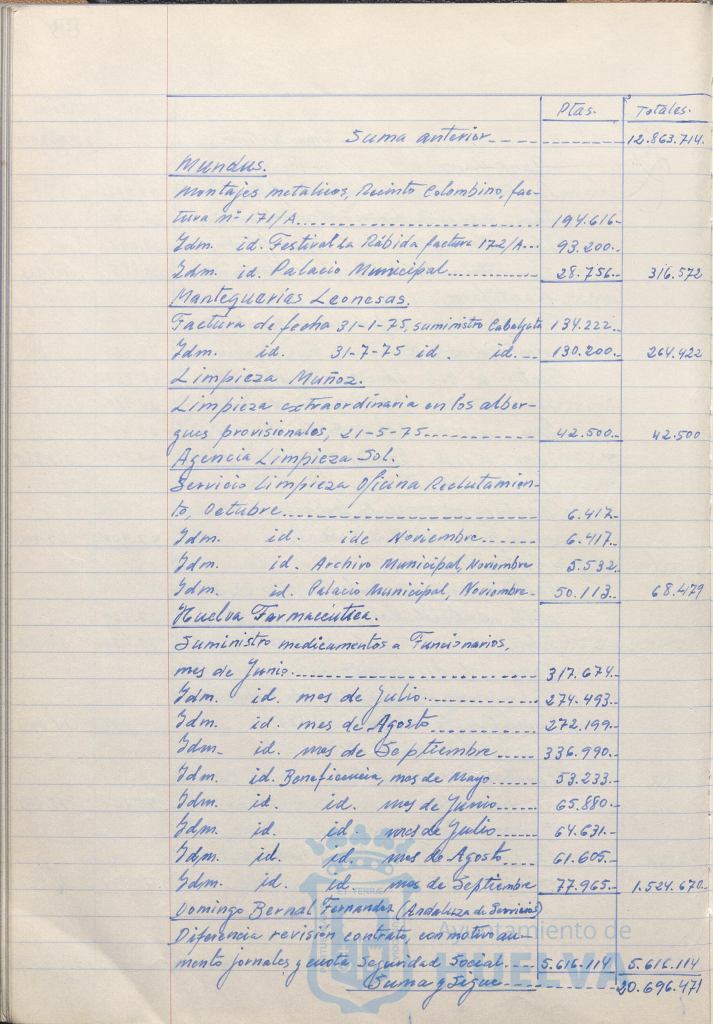 Ptas. Totales.
Suma anterior 12.863.714.
Mundus.
Montajes metalicos, Recinto Colombino, fac-
tura nº 171/A 194.616-
Idm. id. Festival La Rábida factura 172/A 93.200.-
Idm. id. Palacio Municipal 28.756.- 316.572
Mantequerías Leonesas.
Factura de fecha 31-1-75, suministro Cabalgata 134.222.-
Idm. id. 31-7-75 id. id. 130.200.- 264.422
Limpieza Muñoz.
Limpieza extraordinaria en los alber-
gues provisionales, 21-5-75 42.500.- 42.500
Agencia Limpieza Sol.
Servicio Limpieza Oficina Reclutamien-
to, Octubre 6.417.-
Idm. id. id Noviembre 6.417.-
Idm. id. Archivo Municipal, Noviembre 5.532.-
Idm. id. Palacio Municipal, Noviembre- 50.113.- 68.479
Huelva Farmacéutica.
Suministro medicamentos a Funcionarios,
mes de Junio 317.674.-
Idm. id. mes de Julio 274.493.-
Idm. id. mes de Agosto 272.199.-
Idm. id. mes de Septiembre 336.990.-
Idm. id. Beneficencia, mes de Mayo 53.233.-
Idm. id. id. mes de Junio 65.880.-
Idm. id. id. mes de Julio 64.631.-
Idm. id. id. mes de Agosto 61.605.-
Idm. id. id. mes de Septiembre 77.965.- 1.524.670.-
Domingo Bernal Fernandez (Andaluza de Servicios)
Diferencia revisión contrato, con motivo au-
mento jornales y cuota Seguridad Social 5.616.114 5.616.114
Suma y Sigue 20.696.471
Ayuntamiento de
HUELVA